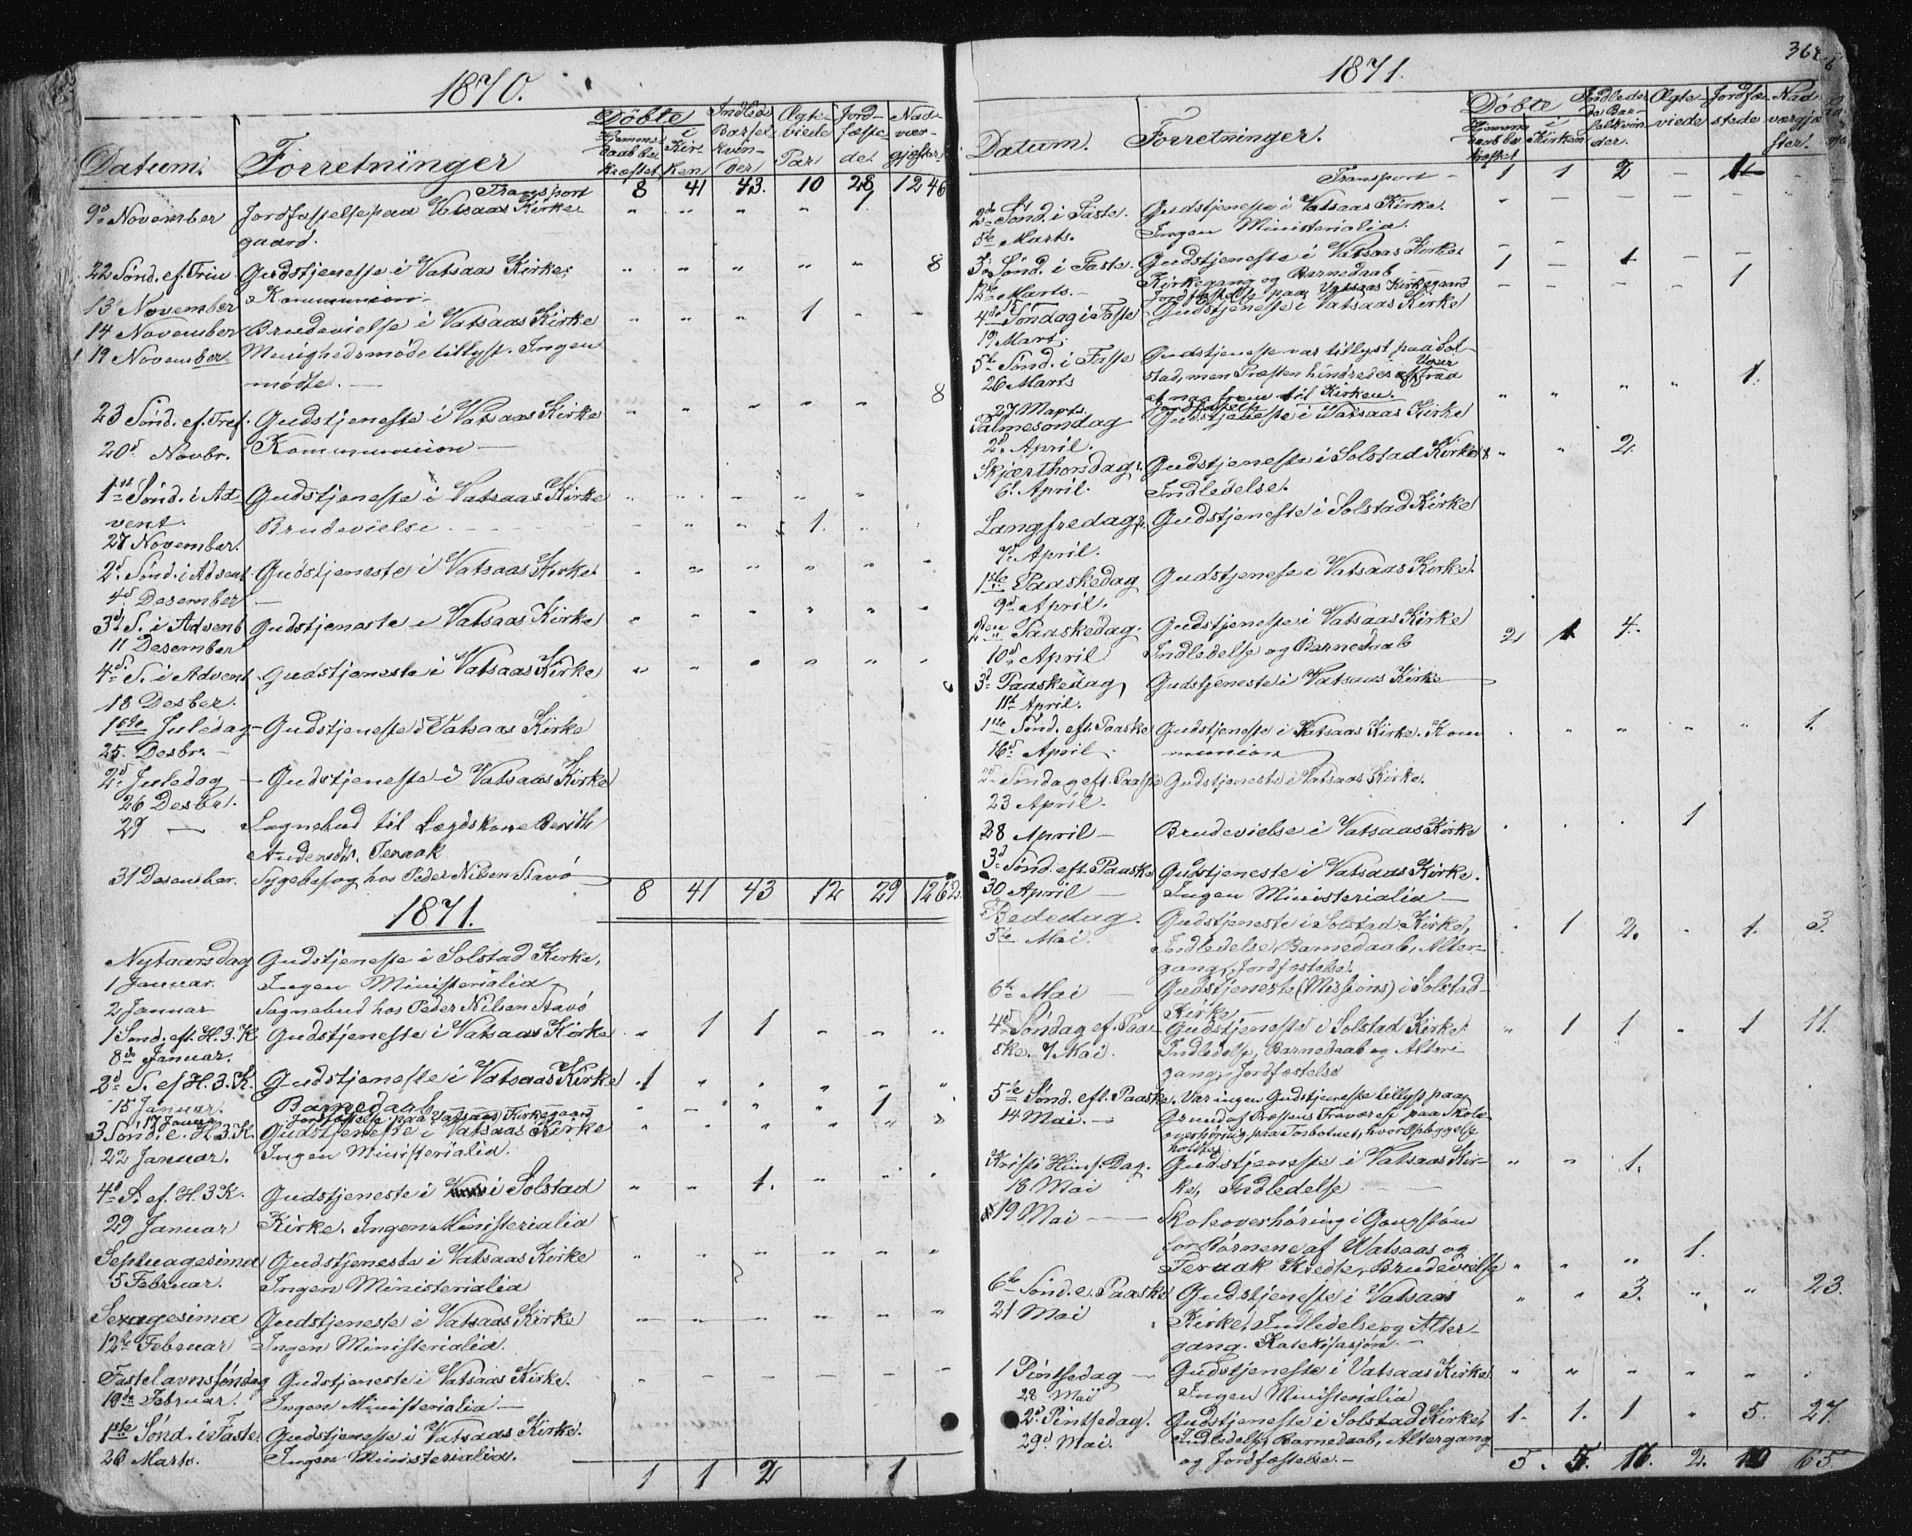 1870.
Datum. Forretninger
Døbte Hjemmedaab bekræftet, i Kirken
Indlede Barselkvinder
Ægteviede Par
Jordfæstede
Nadvergjester
Transport 8 41 43. 10 28 1246
9d November Jordfæstelse paa Vatsaas Kirke-
gaard.
22 Sønd. ef. Trin. Gudstjeneste i Vatsaas Kirke, 8
13 November Kommunion.
14 November Brudevielse i Vatsaas Kirke 1
19 November Menighedsmøde tillyst. Ingen
mødte. —
23 Sønd. ef. Tref. Gudstjeneste i Vatsaas Kirke 8
20d Novbr. Kommunion —
1st Sønd. i Ad- Gudstjeneste i Vatsaas Kirke
vent. Brudevielse 1.
27 November.
2d Sønd. i Advent Gudstjeneste i Vatsaas Kirke.
4d Desember —
3d S. i Advent Gudstjeneste i Vatsaas Kirke
11 Desember
4d S. i Advent Gudstjeneste i Vatsaas Kirke
18 Desber.
1ste Juledag — Gudstjeneste i Vatsaas Kirke
25. Desbr. —
2d Juledag — Gudstjeneste i Vatsaas Kirke
26 Desbr.
29 — Sognebud til Lægdskone Berith
Andersdtr. Teraak
31 Desember. Sygebesøg hos Peder Nilsen Stavø
8 41 43 12 29 1262
1871.
Nytaarsdag Gudstjeneste i Solstad Kirke,
1 Januar. Ingen Ministerialia —
2 Januar Sognebud hos Peder Nilsen Stavø
1 Sønd. eft. H. 3. K. Gudstjeneste i Vatsaas Kirke 1 1
8de Januar.
2d S. ef H. 3. K. Gudstjeneste i Vatsaas Kirke 1
15 Januar. Barnedaab
17 Januar Jordfæstelse paa Vatsaas Kirkegaard 1
3 Sønd. e. H. 3. K. Gudstjeneste i Vatsaas Kirke
22 Januar. Ingen Ministerialia.
4d S. ef. H. 3 K. Gudstjeneste i Solstad 1.
29 Januar Kirke. Ingen Ministerialia
Septuagesima Gudstjeneste i Vatsaas Kirke
5 Februar. Ingen Ministerialia
Sexagesima Gudstjeneste i Vatsaas Kirke
12te Februar Ingen Ministerialia.
Fastelavnssøndag Gudstjeneste i Vatsaas Kirke.
19de Februar. Ingen Ministerialia. —
1ste Sønd. i Faste. Gudstjeneste i Vatsaas Kirke.
26 Marts. Ingen Ministerialia.
1 1 2 1
1871.
Datum. Forretninger.
Døbte Hjemmedaab bekræftet i Kirken
Indlede Barselkvinder.
Ægteviede
Jordfæstede
Nadvergjæster.
Transport — 1 1 2
2d Sønd. i Faste. Gudstjeneste i Vatsaas Kirke.
5te Marts. Ingen Ministerialia.
3d Sønd. i Faste. Gudstjeneste i Vatsaas Kirke. 1
12te Marts. — Kirkegang og Barnedaab
Jordfæstelse paa Vatsaas Kirkegaard 1
4de Søndag i Faste Gudstjeneste i Vatsaas Kirke
19 Mart.
5te Sønd. i Faste Gudstjeneste var tillyst paa Sol-
26 Marts stad, men Præsten hindredes af Veir
at naa frem til Kirken.
27 Marts. Jordfæstelse 1.
Palmesøndag Gudstjeneste i Vatsaas Kirke
2d April.
Skjærthorsdag Gudstjeneste i Solstad Kirke 2
6. April. Indledelse.
Langfredag Gudstjeneste i Solstad Kirke
7. April.
1ste Paaskedag Gudstjeneste i Vatsaas Kirke.
9d April.
2den Paaskedag. Gudstjeneste i Vatsaas Kirke 2 1 4.
10d April Indledelse og Barnedaab
3d Paaskedag Gudstjeneste i Vatsaas Kirke
11te April.
1ste Sønd. eft. Paaske Gudstjeneste i Vatsaas Kirke. Kom 1.
16d April. munion
2d Søndag eft. Paaske Gudstjeneste i Vatsaas Kirke.
23 April.
28 April — Brudevielse i Vatsaas Kirke 1
3d Sønd. eft. Paaske Gudstjeneste i Vatsaas Kirke.
30 April — Ingen Ministerialia —
Bededag. Gudstjeneste i Solstad Kirke, 1 2. 1. 3.
5te Mai. Indledelse, Barnedaab, Alter-
gang, Jordfæstelse.
6te Mai — Gudstjeneste (Missions) i Solstad-
Kirke —
4d Søndag ef. Paa- Gudstjeneste i Solstad Kirke. 1 1 1 11.
ske. 7 Mai. Indledelse, Barnedaab og Alter-
gang, Jordfæstelse
5te Sønd. eft. Paaske. Var ingen Gudstjeneste tillyst paa
14 Mai. — Grund af Præstens Fravær paa Skole
overhøring paa Fosbotnet, hvor Opbyggelse
holdtes
Kristi Himf. Dag. Gudstjeneste i Vatsaas Kir- 1.
18 Mai ke, Indledelse
19 Mai — Skoleoverhøring i Gangstøen
for Børnene af Vatsaas og
Teraak Kredse, Brudevielse 1.
6te Sønd. e. Paaske Gudstjeneste i Vatsaas 3. 23.
21 Mai Kirke, Indledelse og Alter-
gang. Katekisasjon. —
1 Pintsedag — Gudstjeneste i Vatsaas Kirke
28 Mai Ingen Ministerialia
2d Pintsedag. Gudstjeneste i Solstad Kirke, 1. 1. 1 5. 27.
29d Mai. Indledelse, Barnedaab, Altergang
og Jordfæstelse. — 5. 5. 16. 2. 10 65.